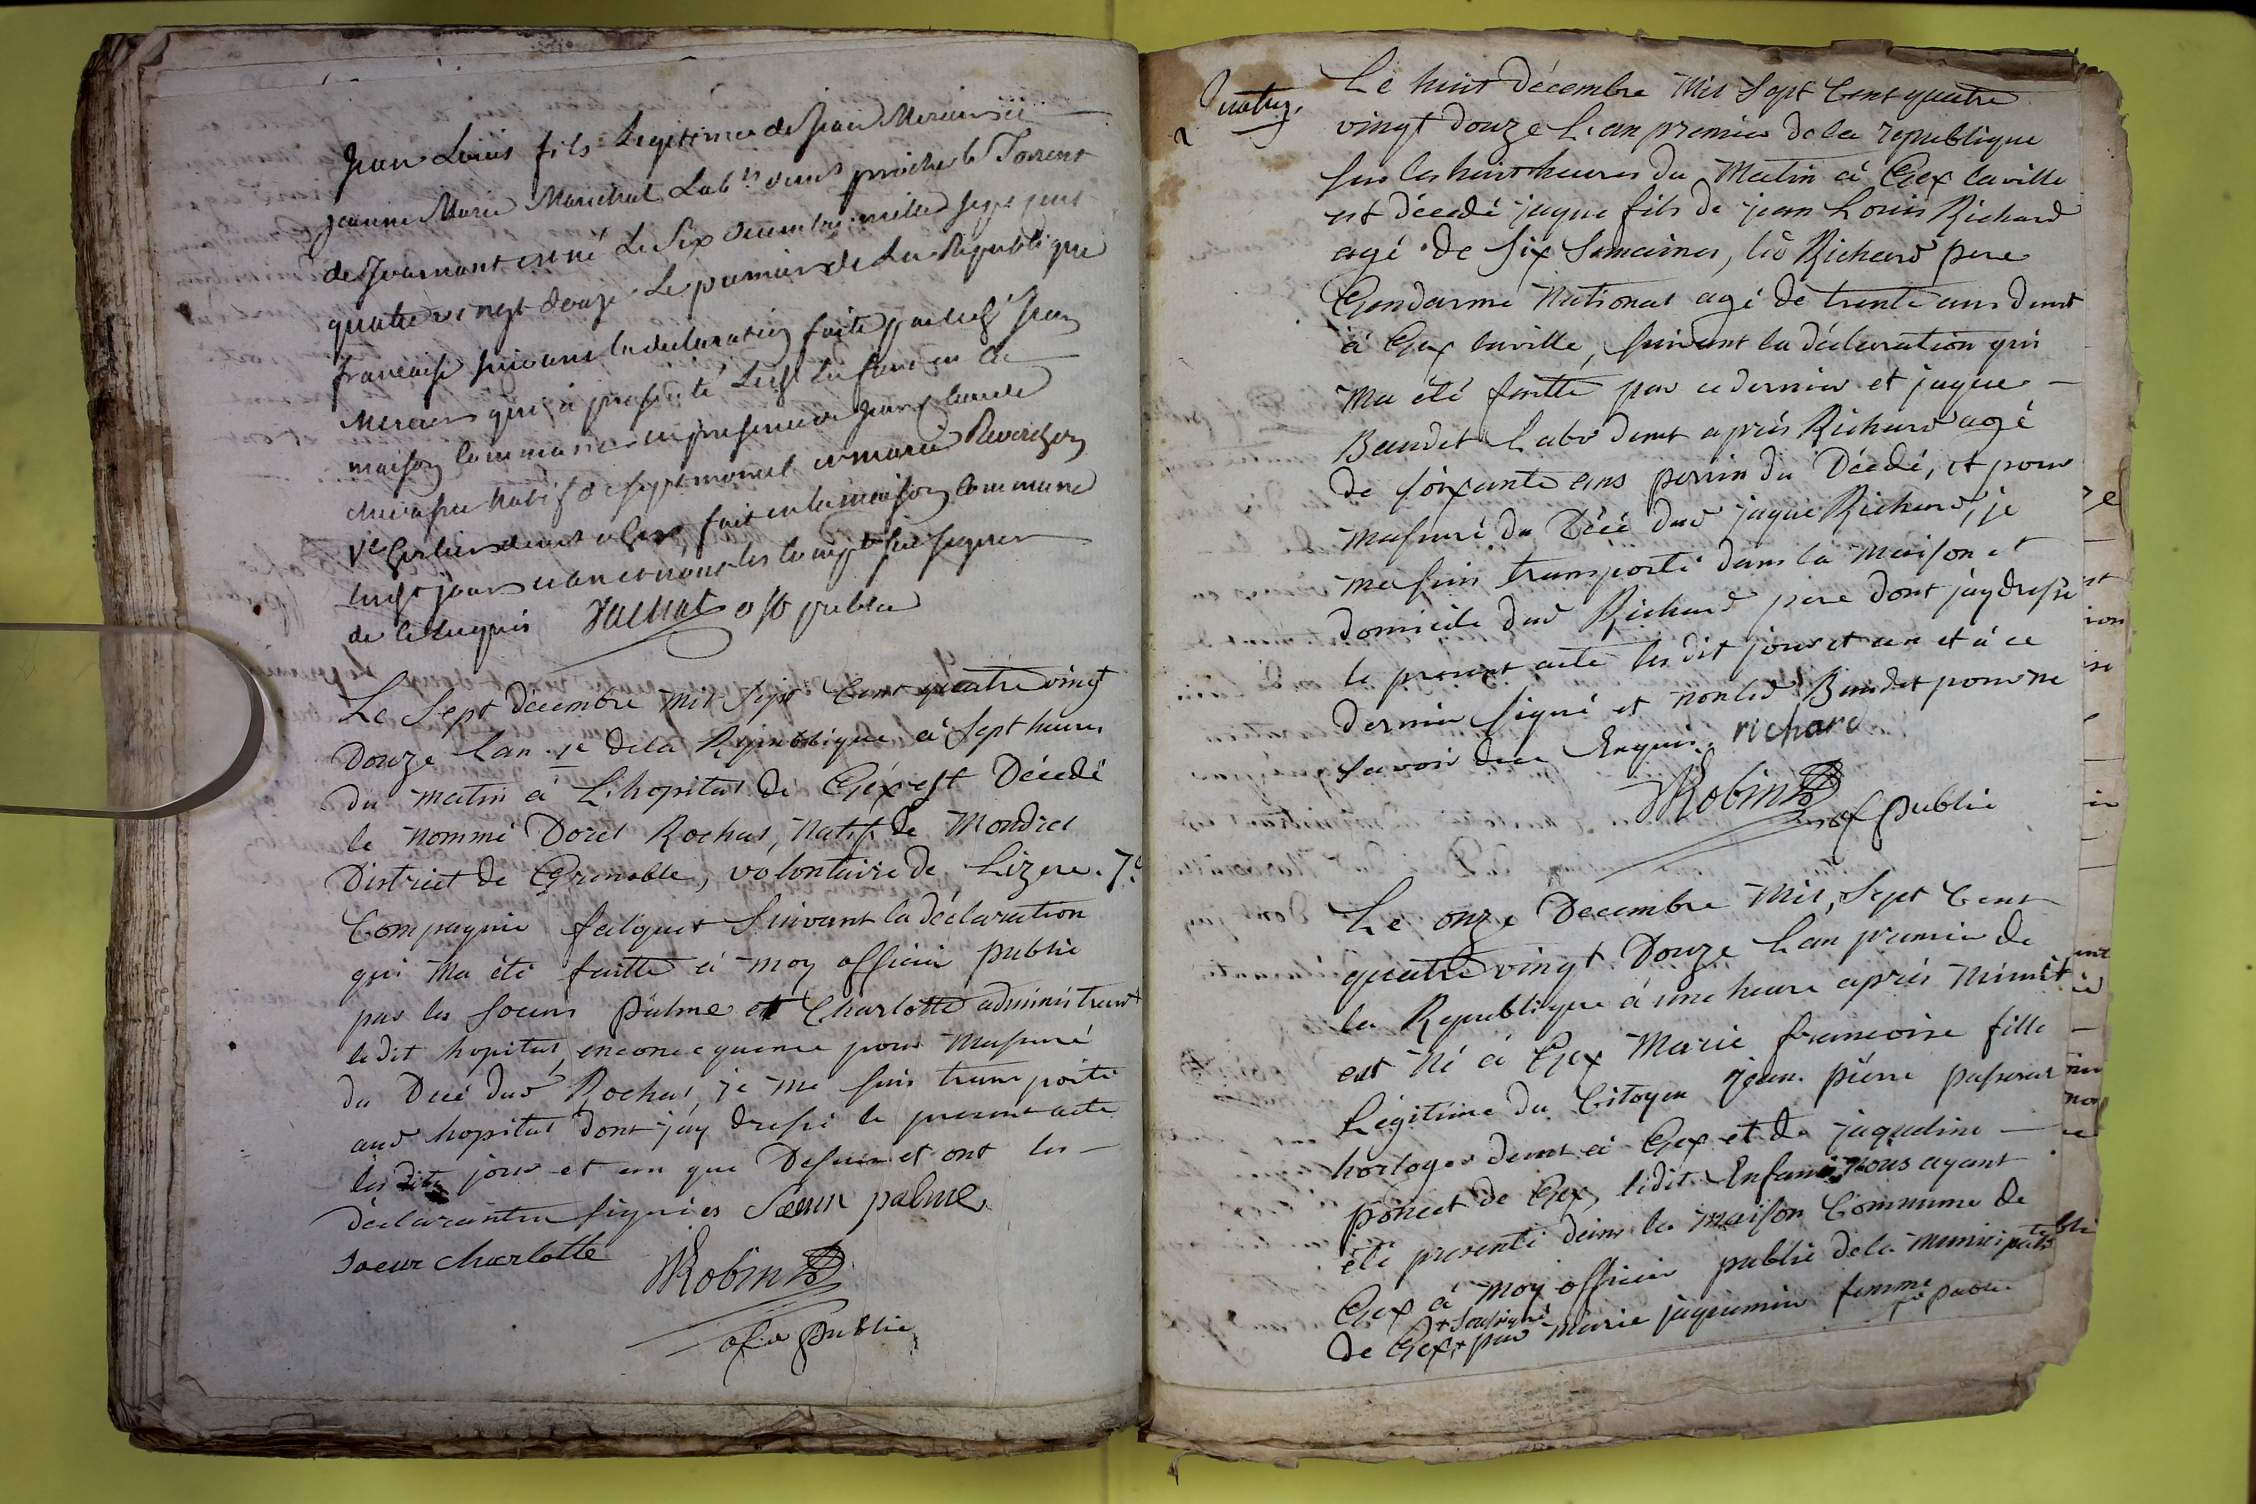 Jean Louis fils Legitime de Jean Mercier et
Jeanne Marie Marechal Lab.rs demt proche le Torrent
de Journant est né Le Six decembre mille sept cent
quatre vingt douze Le premier de La Republique
francaise suivant la declaration faite par led Jean
Mercier qui a presenté Led Enfant en la
maison Commune en presence de Jean Claude
habit de Septmoncel et marie Reverchon
Ve demt a Gex, fait en la maison Commune
lesd jour et an et nont les Comp.ts sçu signer
de ce Enquis Vachat off public
Le Sept décembre Mil Sept Cent quatre vingt
Douze Lan 1e dela Republique à Sept heures
du matin à L'hopital de Gex est Décedé
le nommé Dorel Rochas, Natif de Mondret
District de Grenoble, volontaire de Lizere. 7e
Compagnie falquet Suivant la déclaration
qui Ma été faitte à moy officier public
par les Soeurs palme et Charlotte administrant
ledit hopital, enconcequence pour Massuré
du Décé dud Rochas, je me suis transporté
aud hopital dont jáy dressé le present acte
les dits jour et an que Dessus et ont les
déclarantes signées Sœur palme
Soeur charlotte
Robin
ofer public
quatrz.
Le huit décembre Mil Sept Cent quatre
vingt douze L'an premier dela republique
sur les huit heures du Matin à Gex laville
est décedé jaque fils de jean Louis Richard
agé de Six Semaines, led Richard pere
Gendarme National agé de trente ans demt
à Gex laville, suivant la déclaration qui
Ma été faitte par ce dernier et jaque
Baudet Labr demt aprés Richard agé
de soixante ans parrin du Décedé, et pour
massuré du Décé dud jaque Richard, je
me suis transporté dans la maison et
domicile dud Richard pere dont jáy dressé
le present acte les dit jour et an et à ce
dernier signé et non led Baudet pour ne
savoir dece Enquis. richard
Robin
of public
Le onze Decembre Mil, Sept Cent
quatre vingt Douze L'an premier de
la Republique à une heure aprés Minuit
est Né à Gex Marie francoise fille
Légitime du Citoyen jean pierre passerat
horloger demt à Gex et de jaqueline
poncet de Gex, ledit Enfant Nous ayant
été presenté dans la Maison Commune de
Gex à Moy officier public dela municipalité
+ Sousigné
de Gex+ par Marie jaquemin femme